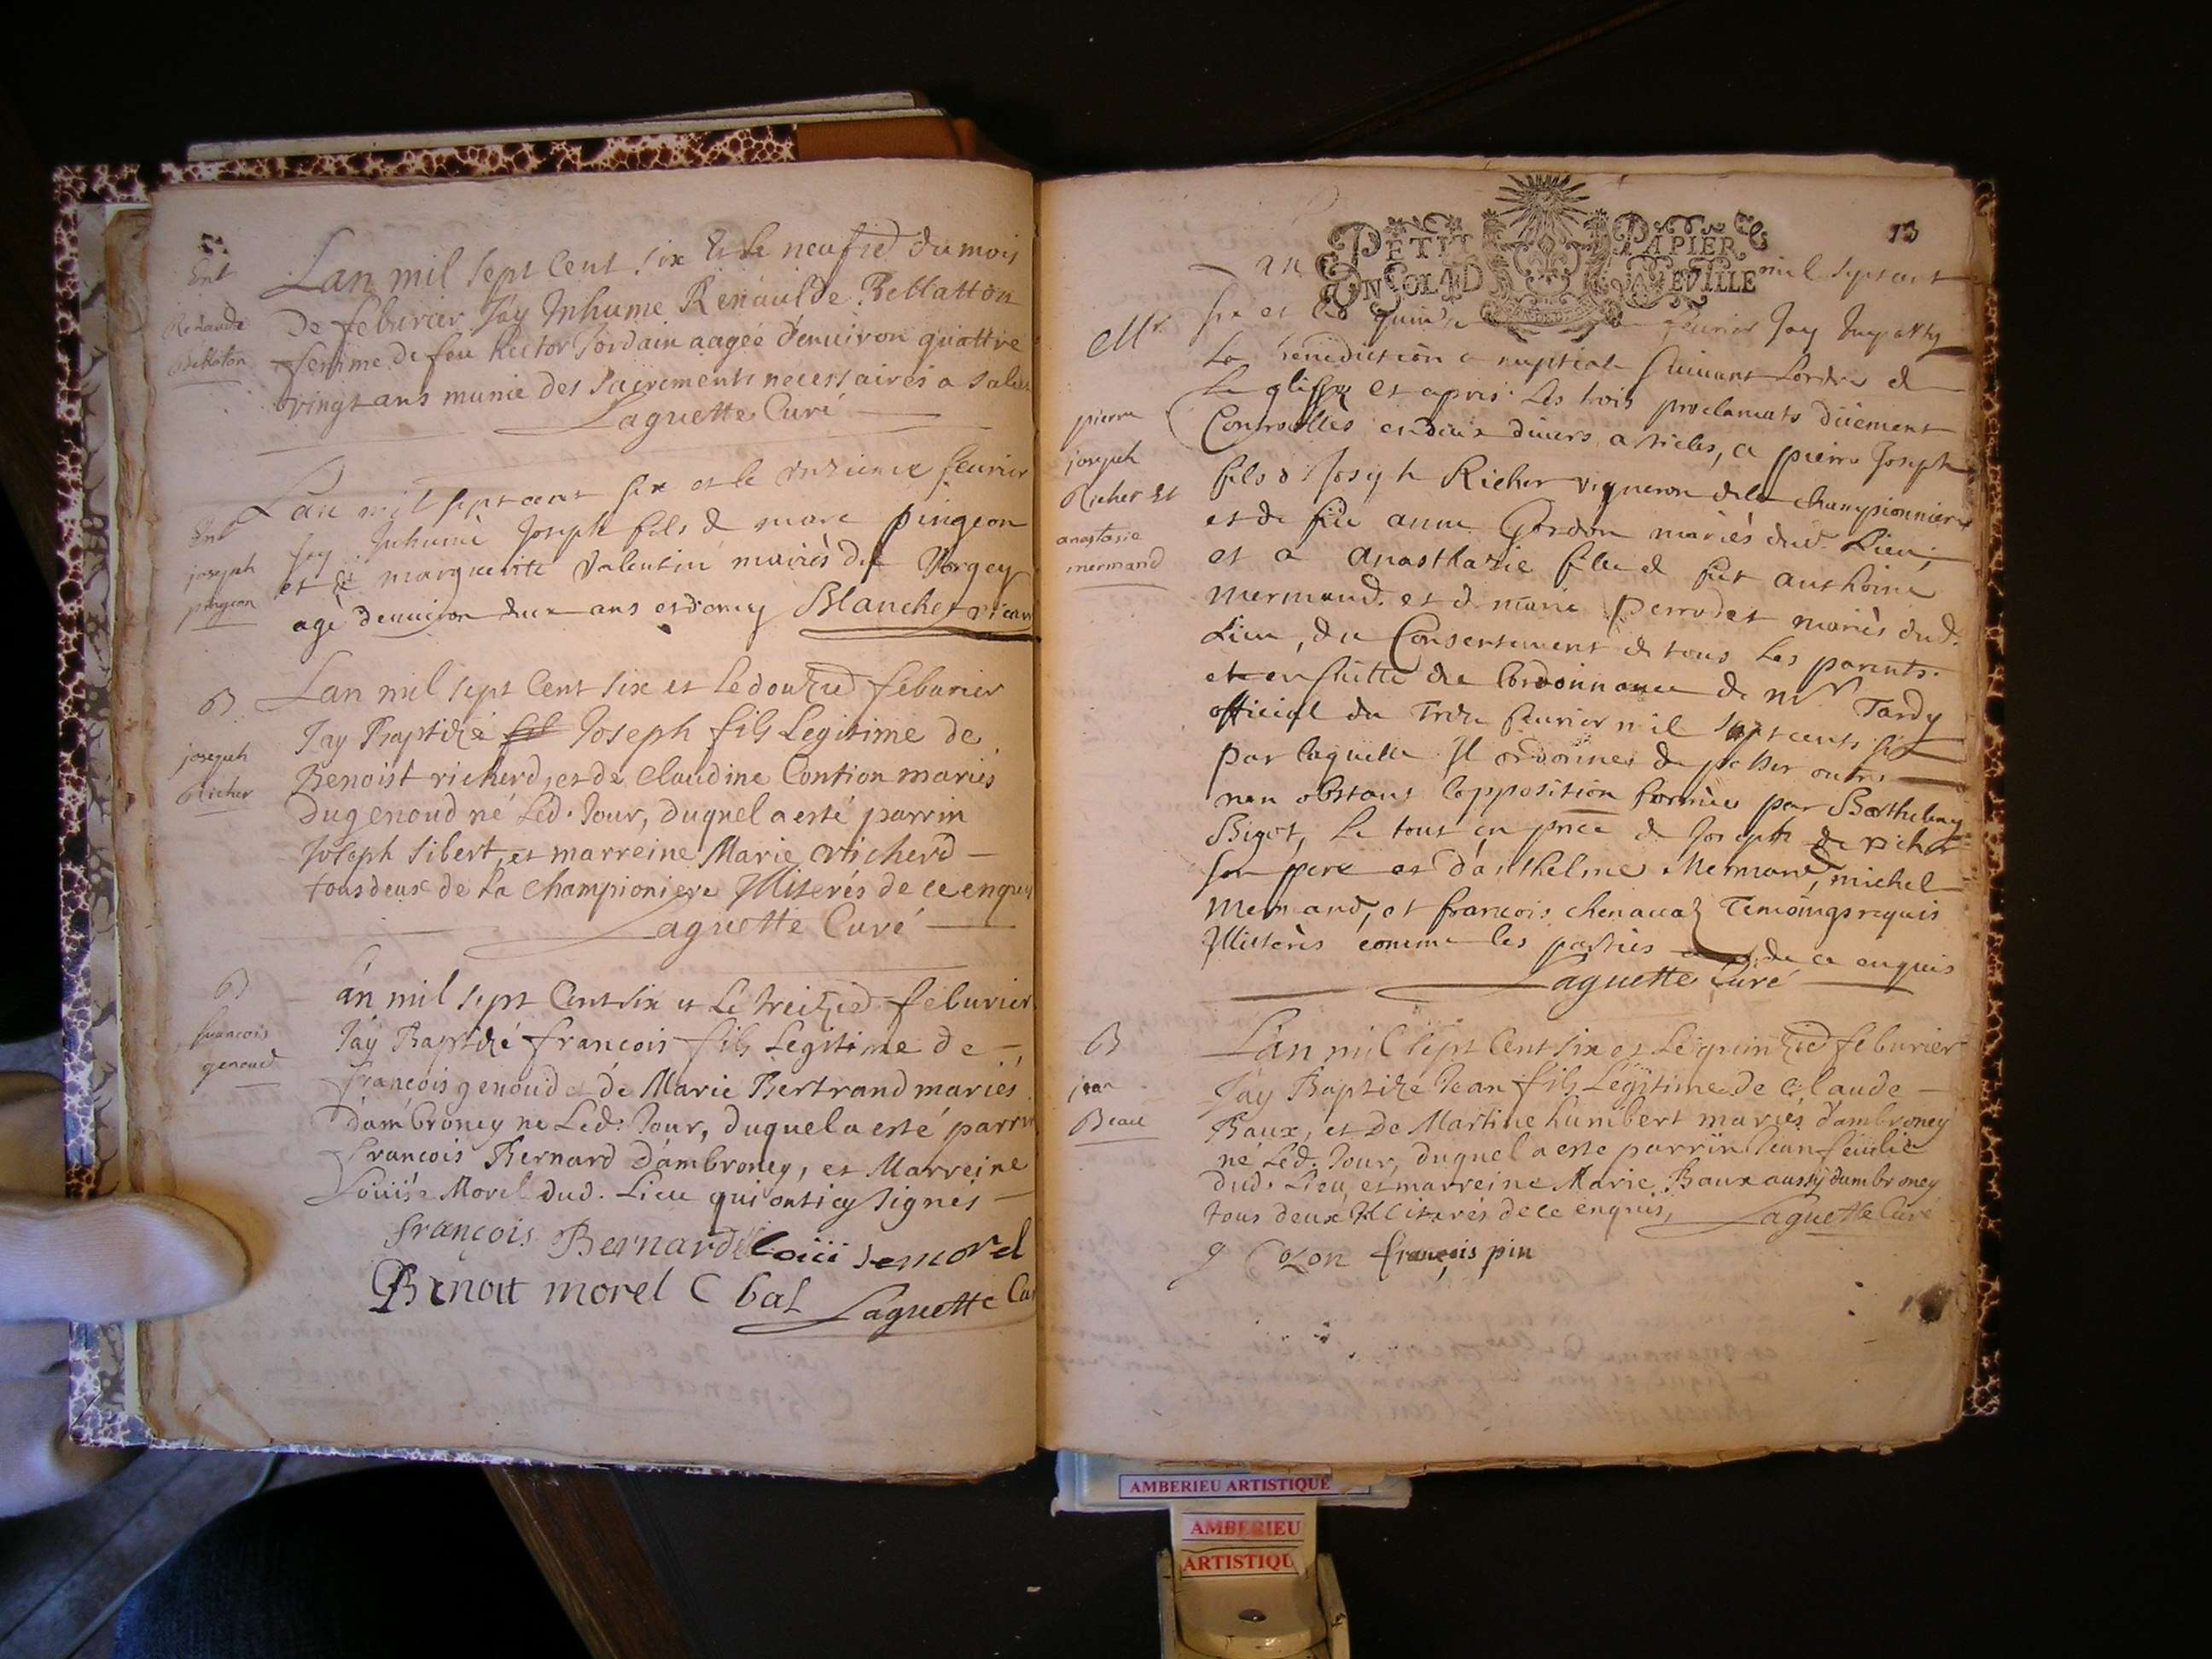 Ent
Renaude
Bellaton
Lan mil sept Cent six Et le neufie du mois
De feburier Jay Inhume Renaulde Bellatton
femme de feu Hector Jordain aagée d'enuiron quattre
vingt ans munie des Sacrements necessaires a salu
Laguette Curé
Ent
joseph
pingeon
Lan mil sept cent six et le onzieme feurier
Jay Inhumé Joseph fils de marc pingeon
et de marguerite Valentin mariés du Vorgey
agé denuiron deux ans Blanchet vicair
B
joseph
Richer
Lan mil sept Cent six et le douzie feburier
Jay Baptizé Joseph fils Legitime de
Benoist richerd, et de Claudine Contion mariés
Dugenoud né Led. Jour, duquel a esté parrin
Joseph Sibert, et marreine Marie richerd
tous deux de la Championiere Illiterés de ce enquis
Laguette Curé
B
francois
genoud
an mil sept Cent six et le treizie feburier
Jay Baptizé francois fils Legitime de
francois genoud et de Marie Bertrand mariés
d'ambroney ne Led. Jour, duquel a esté parrin
francois Bernard d'ambroney, et Marreine
Louise Morel dud. Lieu qui ont icy signés
françois Bernard Loüise morel
Benoit morel C bal Laguette Cu
13
PETIT PAPIER
UN SOL 4 D LA FEVILLE
an mil sept cent
six et le quinze feurier Jay Imparty
La benediction nuptiale suiuant Lordre de
Leglise et aprés Les trois proclamats düement
Controlles en deux diuers articles, a pierre Joseph
fils de Joseph Richer vigneron dela championniere
et de feu anne Gordon mariés dud. Lieu,
et a Anasthazie fille de feu anthoine
Mermand. et de marie perrodet mariés dud.
Lieu, du Consentement de tous Les parents.
et en suitte de Lordonnance de Mr Tardy
official du feurier mil sept cents six
par laquelle Il ordonne de passer outre
non obstant lopposition formée par Barthelemy
Bigot, Le tout en pnce de Joseph de richer
son pere et d'anthelme Mermand, michel
Mermand, et francois chenauaz Temoings requis
Illiterés comme les parties de ce enquis
Laguette Curé
Mr.
pierre
joseph
Richer et
anastasie
mermand
B
jean
Beau
Lan mil sept Cent six et Le quinzie feburier
Jay Baptize Jean fils Legitime de Claude
Baux, et de Martine humbert mariés d'ambroney
né Led. Jour, duquel a este parrin Jean feüilie
dud. Lieu, et marreine Marie Baux aussy d'ambroney
tous deux Illiterés de ce enquis, Laguette Curé
françois pin
AMBERIEU ARTISTIQUE
AMBERIEU
ARTISTIQU